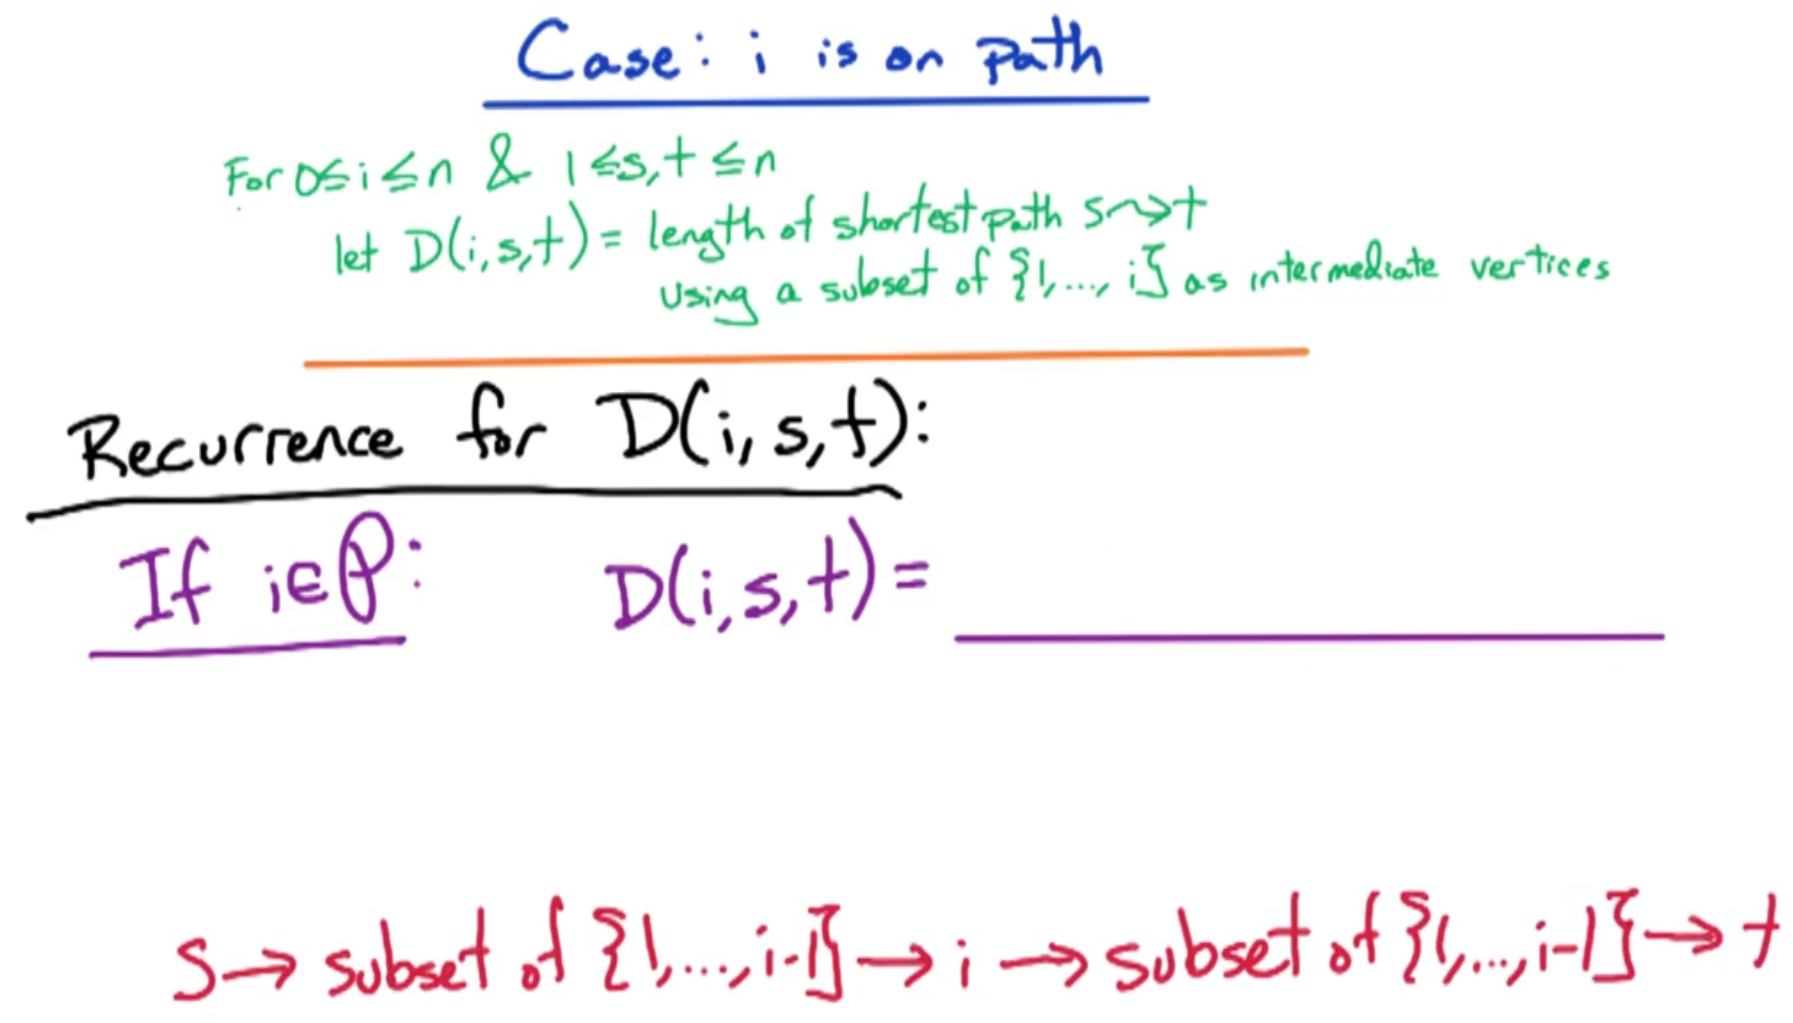 Case: i is on path
For 0≤i≤n & 1≤s,t≤n
let D(i,s,t) = length of shortest path s⇝t
using a subset of {1,...,i} as intermediate vertices
Recurrence for D(i,s,t):
If i∈P: D(i,s,t) =
S→subset of {1,...,i-1}→i→subset of {1,...,i-1}→t